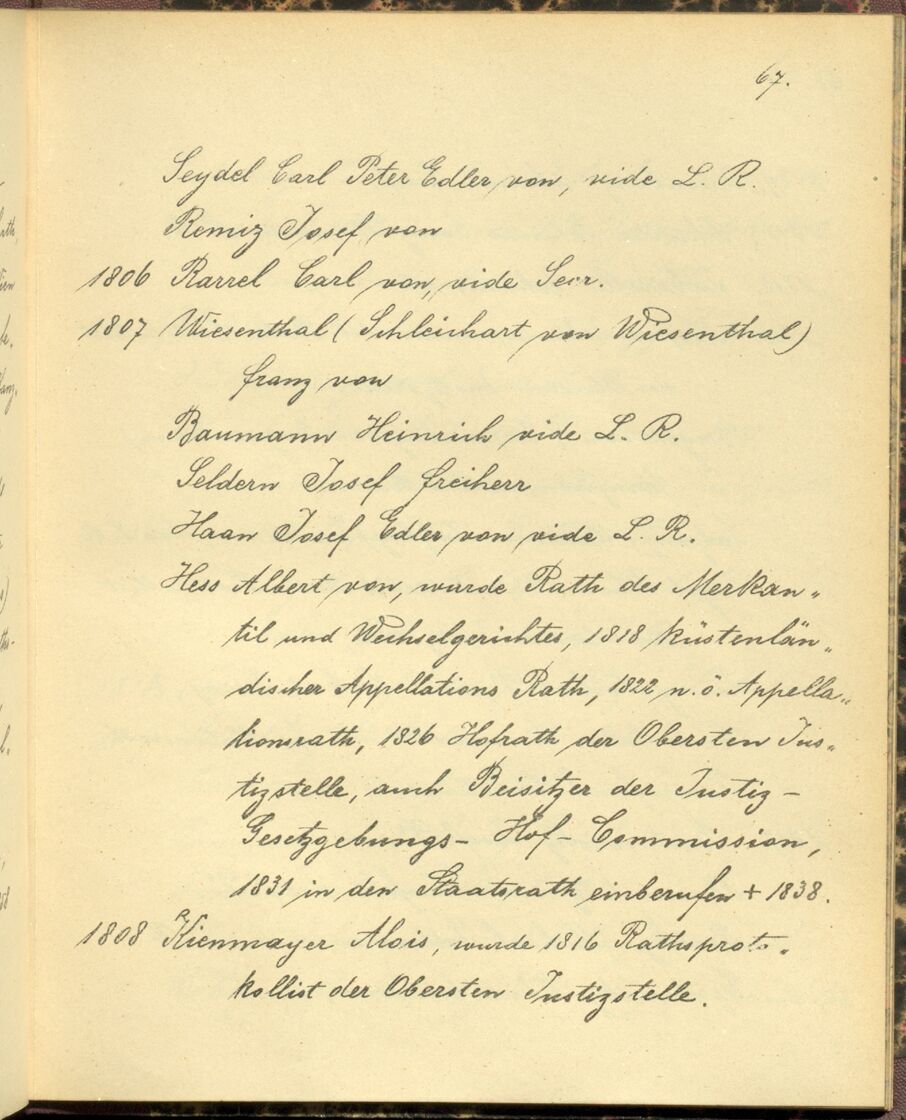 67.
Seydel Carl Peter Edler von, vide L. R.
Remiz Josef von
1806 Rarrel Carl von, vide Secr.
1807 Wiesenthal (Schleichart von Wiesenthal)
Franz von
Baumann Heinrich vide L. R.
Seldern Josef Freiherr
Haan Josef Edler von vide L. R.
Hess Albert von, wurde Rath des Merkan„
til und Wechselgerichtes, 1818 küstenlän„
discher Appellations Rath, 1822 n. ö. Appella„
tionsrath, 1826 Hofrath der Obersten Jus„
tizstelle, auch Beisitzer der Justiz-
Gesetzgebungs- Hof- Commission,
1831 in den Staatsrath einberufen + 1838.
1808 Kienmayer Alois, wurde 1816 Rathsproto„
kollist der Obersten Justizstelle.